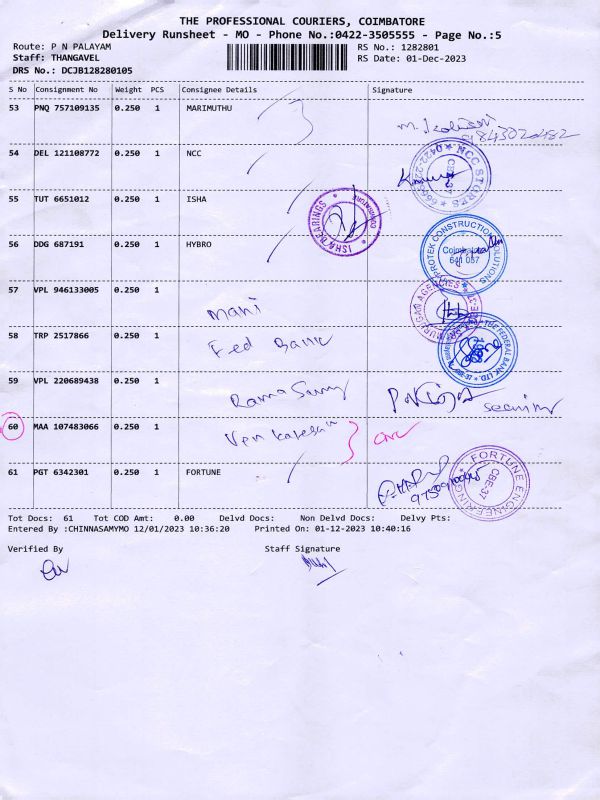 THE PROFESSIONAL COURIERS, COIMBATORE
Delivery Runsheet - MO - Phone No.:0422-3505555 - Page No.:5
Route: P N PALAYAM RS No.: 1282801
Staff: THANGAVEL RS Date: 01-Dec-2023
DRS No.: DCJB128280105
S No Consignment No Weight PCS Consignee Details Signature
53 PNQ 757109135 0.250 1 MARIMUTHU
54 DEL 121108772 0.250 1 NCC
NCC STORES
55 TUT 6651012 0.250 1 ISHA
ISHA BEARINGS COIMBATORE
56 DDG 687191 0.250 1 HYBRO
PROTEK CONSTRUCTION SOLUTIONS
Coimbatore
641 037
57 VPL 946133005 0.250 1 Mani
MURUGAN AGENCIES
58 TRP 2517866 0.250 1 Fed Bank
THE FEDERAL BANK LTD.
59 VPL 220689438 0.250 1 Rama Samy
60 MAA 107483066 0.250 1 Venkatesan
61 PGT 6342301 0.250 1 FORTUNE
FORTUNE ENGINEERING
CBE-37
Tot Docs: 61 Tot COD Amt: 0.00 Delvd Docs: Non Delvd Docs: Delvy Pts:
Entered By :CHINNASAMYMO 12/01/2023 10:36:20 Printed On: 01-12-2023 10:40:16
Verified By Staff Signature